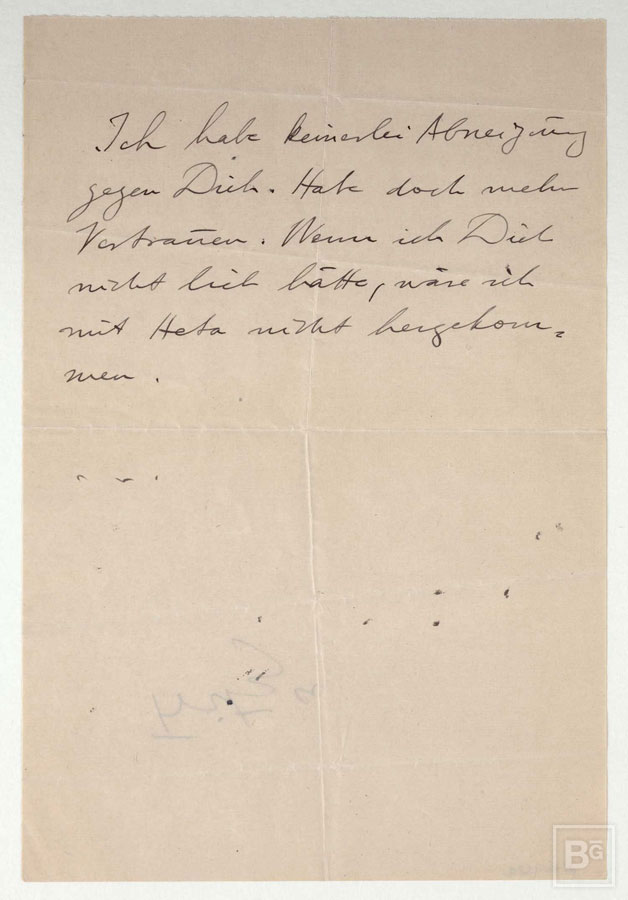 Ich habe keinerlei Abneigung
gegen Dich. Habe doch mehr
Vertrauen. Wenn ich Dich
nicht lieb hätte, wäre ich
mit Heta nicht hergekom=
men.
BG